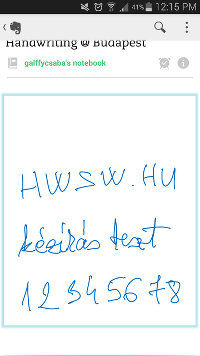 41% 12:15 PM
Handwriting @ Budapest
galffycsaba's notebook
HWSW.HU
kézírás teszt
12345678